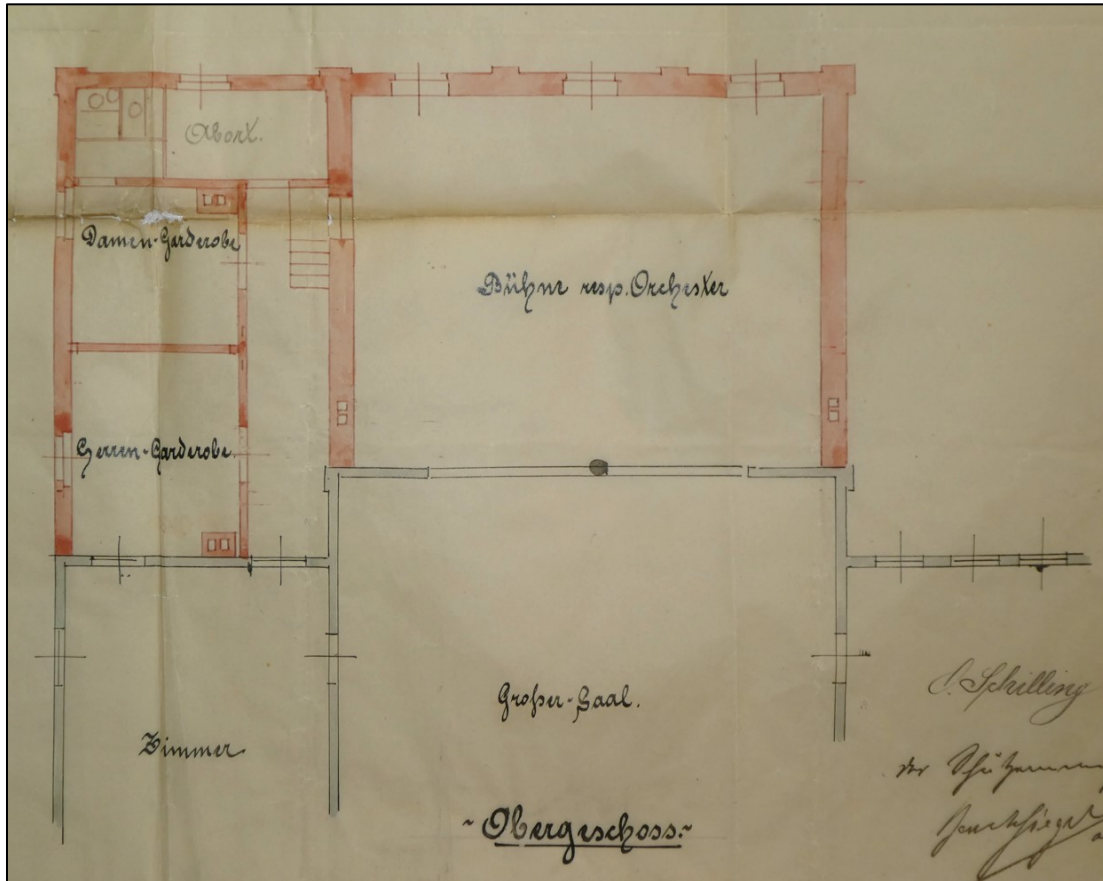 Abort.
Damen-Garderobe
Bühne resp. Orchester
Herren-Garderobe.
Großer-Saal.
Zimmer.
~Obergeschoss.~
Schilling
der